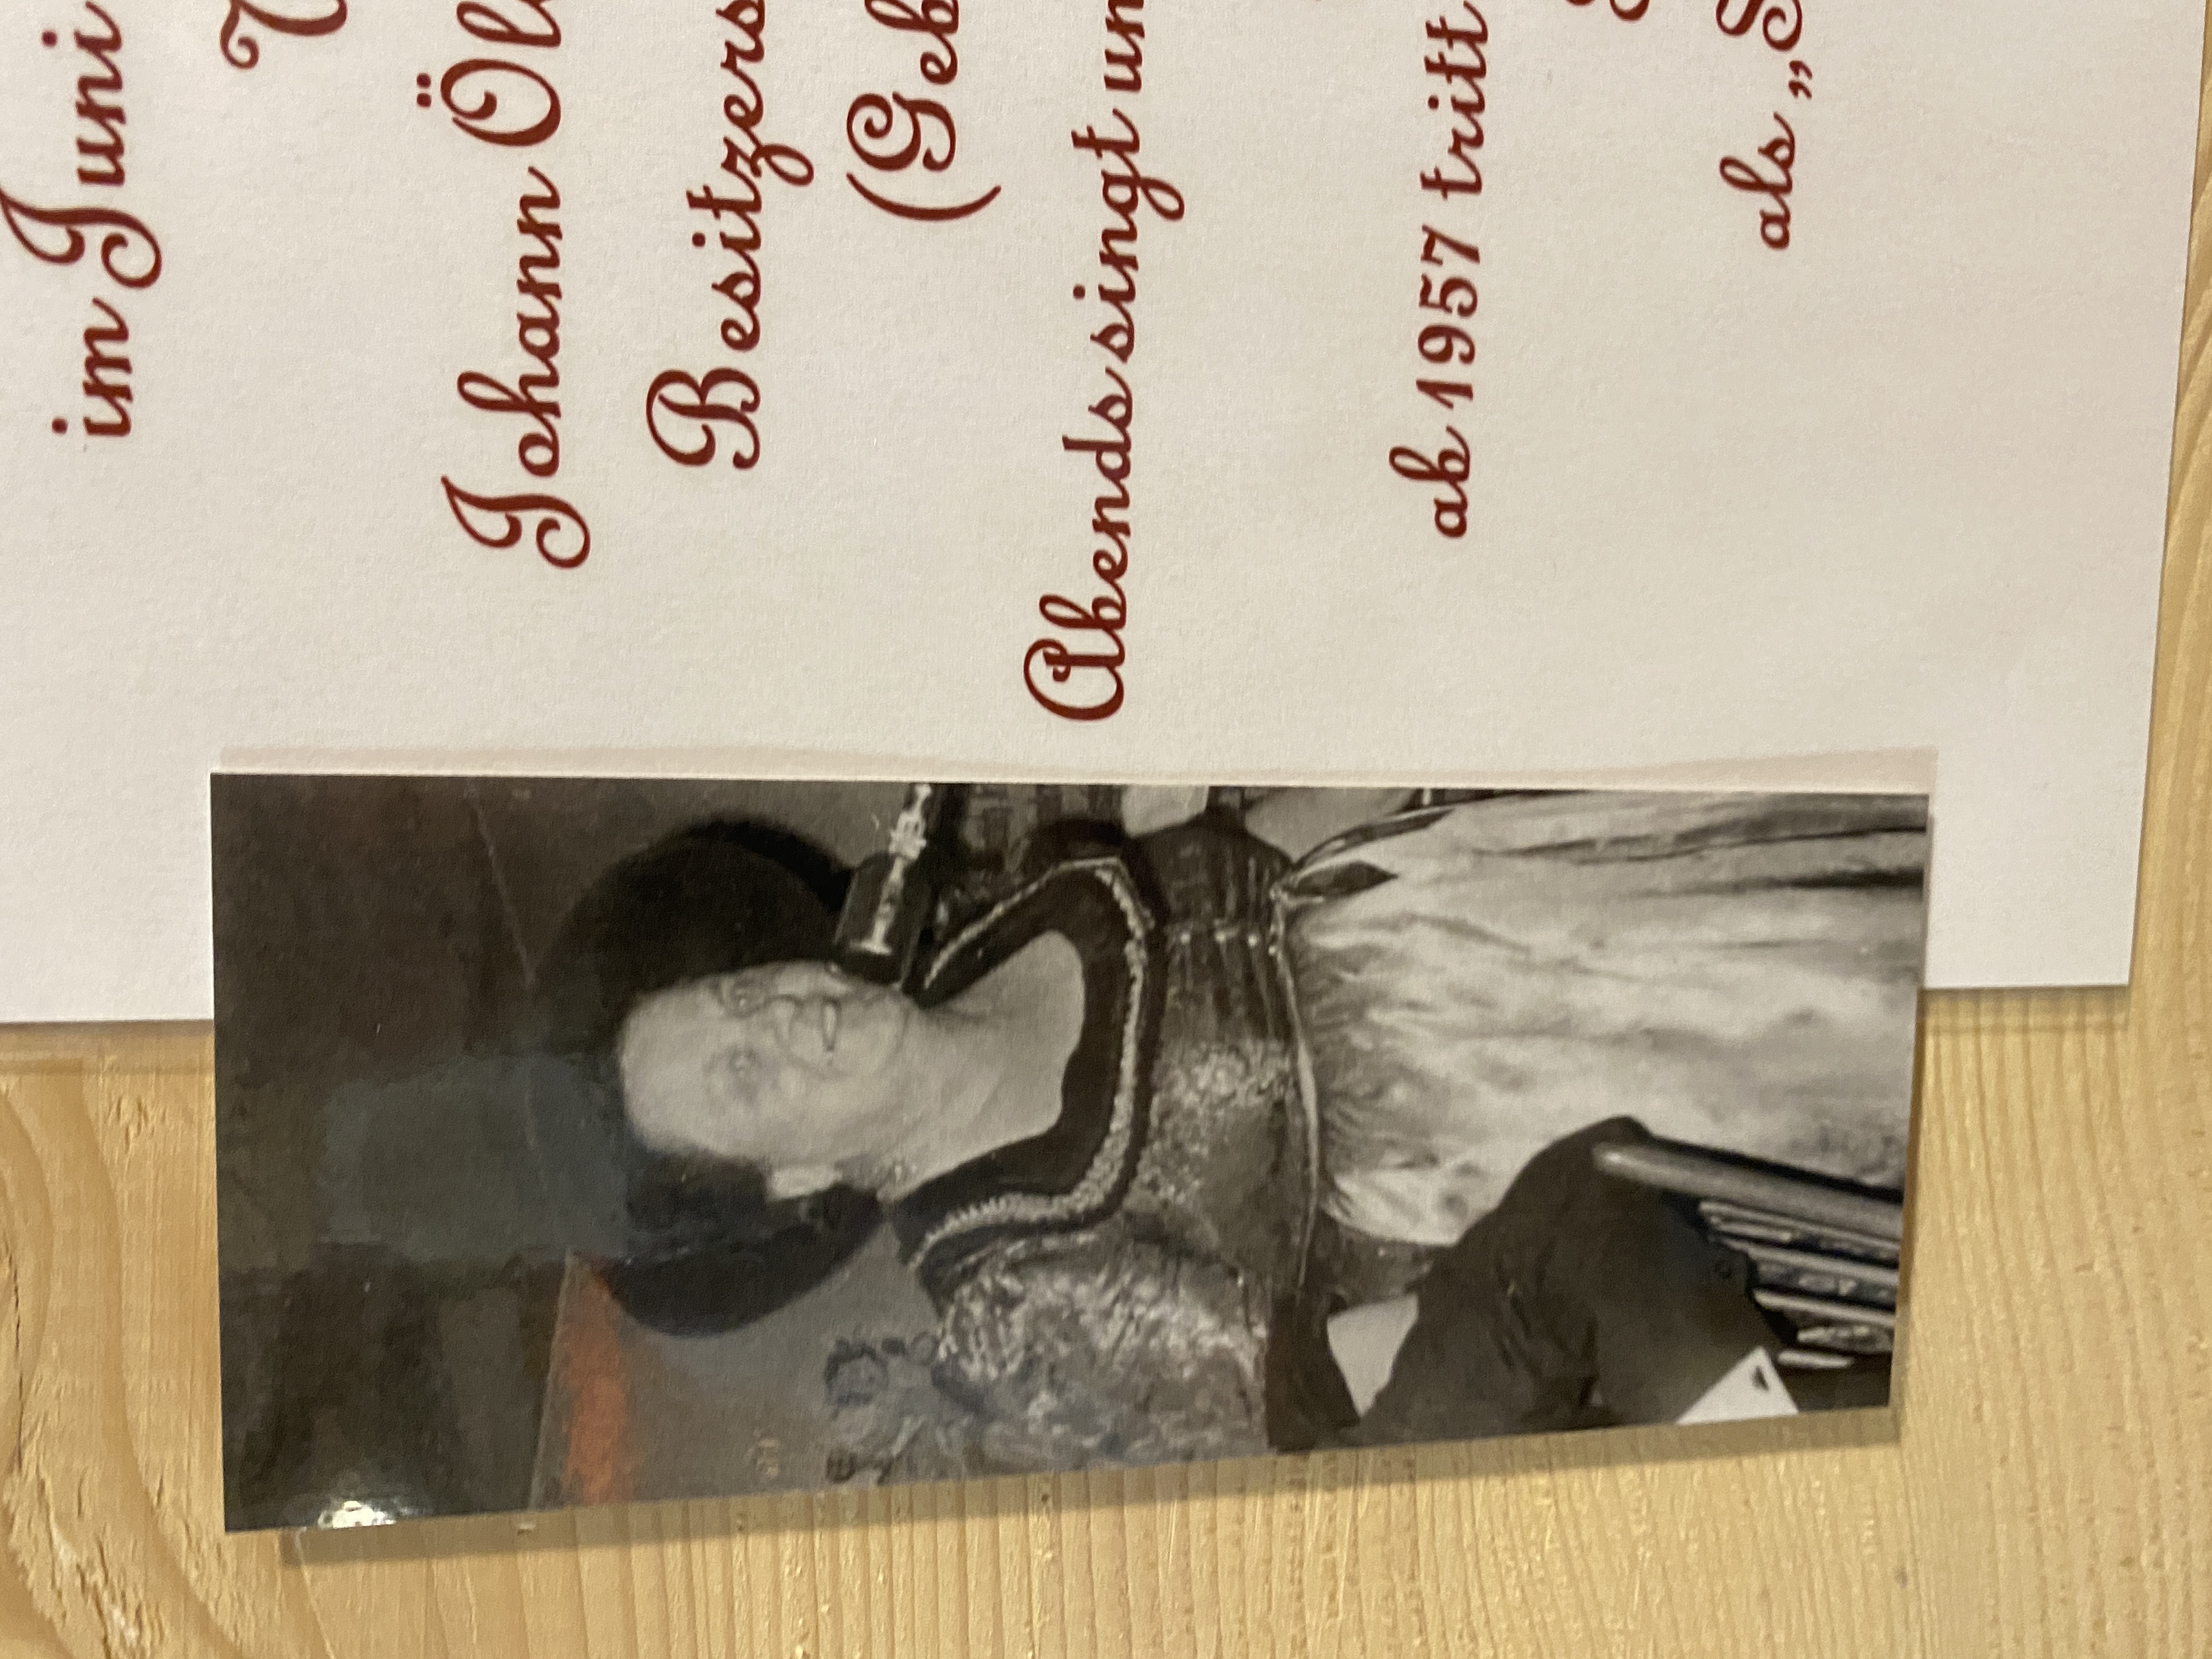 im Juni
Johann
Besitzers
Abends singt
ab 1957 tritt
als „S